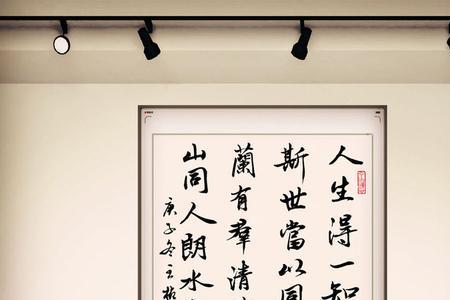 人生得一知
斯世當以同
蘭有羣清
山同人朗水
庚子冬